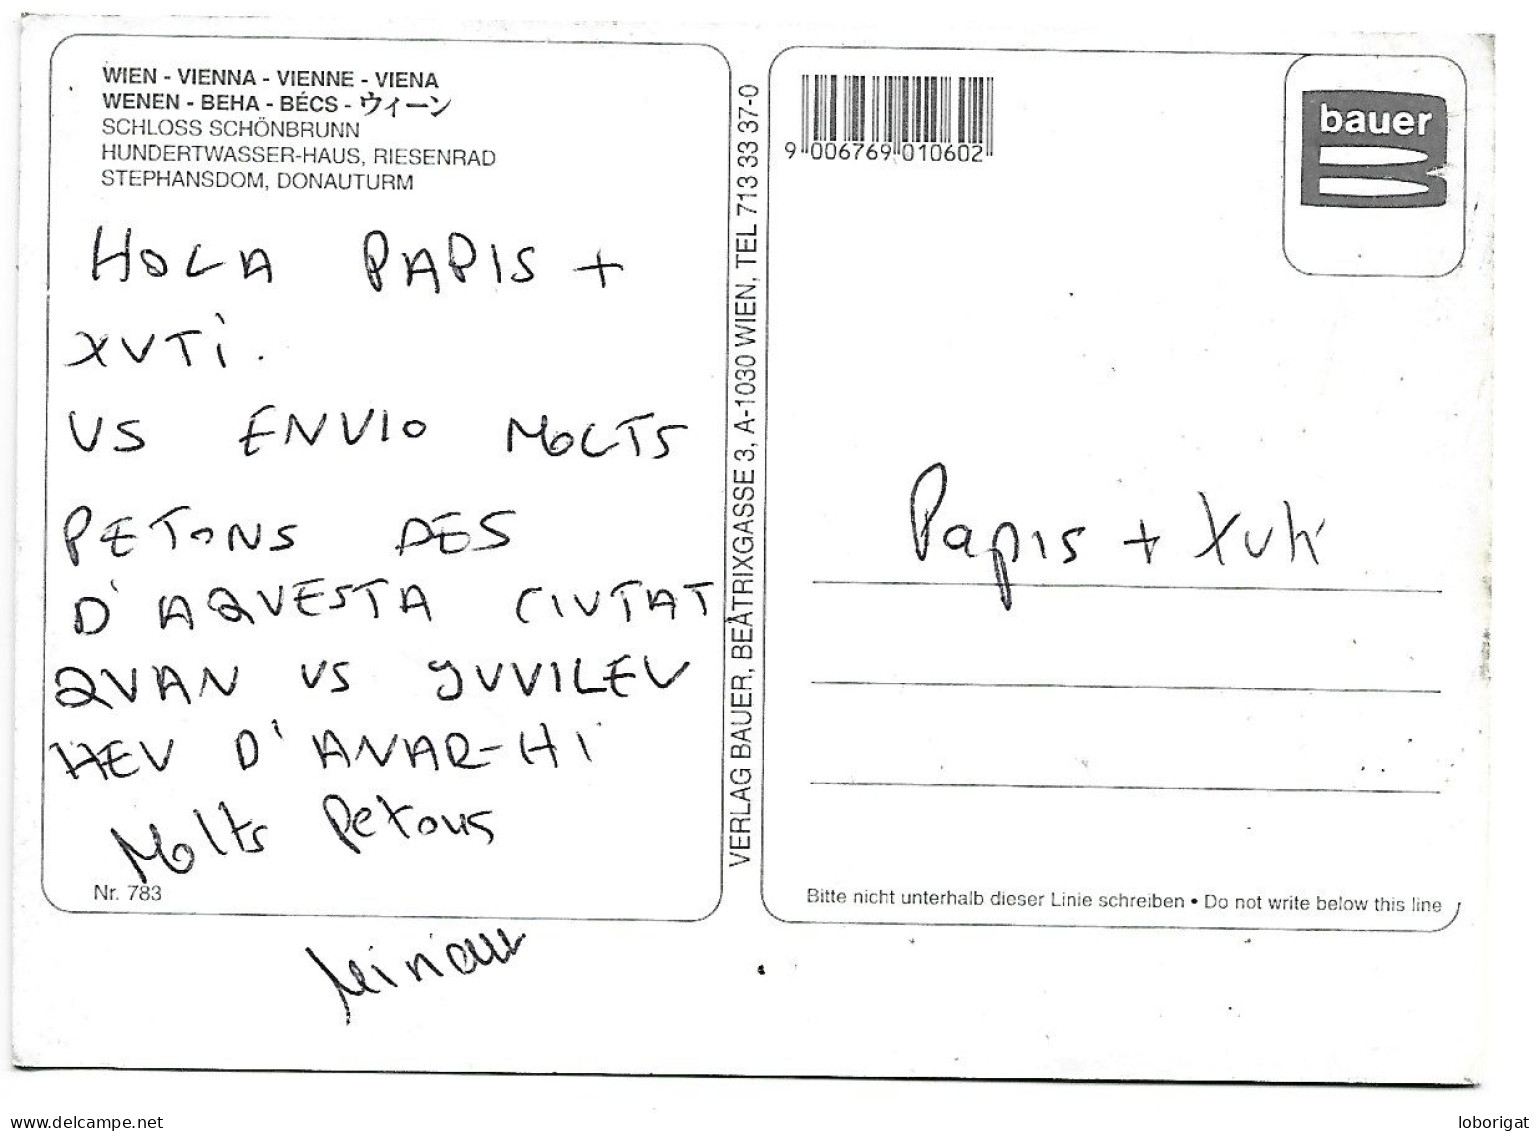 WIEN - VIENNA - VIENNE - VIENA
WENEN - BEHA - BÉCS - ウィーン
SCHLOSS SCHÖNBRUNN
HUNDERTWASSER-HAUS, RIESENRAD
STEPHANSDOM, DONAUTURM
HOLA PAPIS +
XUTI.
US ENVIO MOLTS
PETONS DES
D'AQUESTA CIUTAT
QUAN US JUVILEU
HEU D'ANAR-HI
Molts Petons
Nr. 783
Miriam
VERLAG BAUER, BEATRIXGASSE 3, A-1030 WIEN, TEL 713 33 37-0
9 006769 010602
bauer
Papis + Xuti
Bitte nicht unterhalb dieser Linie schreiben • Do not write below this line
delcampe.net
loborigat